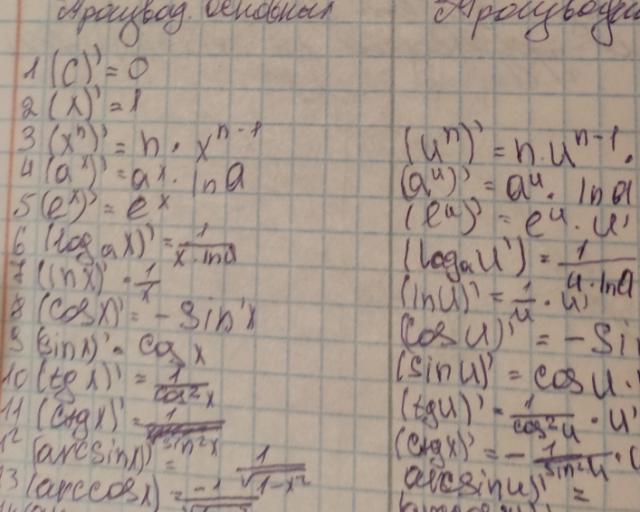 Производ. основных
1 (C)' = 0
2 (x)' = 1
3 (xⁿ)' = n · xⁿ⁻¹
4 (aˣ)' = aˣ · ln a
5 (eˣ)' = eˣ
6 (logₐx)' = 1/(x · ln a)
7 (ln x)' = 1/x
8 (cos x)' = - sin'x
9 (sin x)' = cos x
10 (tg x)' = 1/cos²x
11 (ctg x)' = 1/sin²x
12 (arcsin x)' = 1/√(1-x²)
13 (arccos x) = -1/√1
(uⁿ)' = n · uⁿ⁻¹ ·
(aᵘ)' = aᵘ · ln a
(eᵘ)' = eᵘ · u'
(logₐu') = 1/(u · ln a)
(ln u)' = 1/u · u'
(cos u)' = - si
(sin u)' = cos u ·
(tg u)' = 1/cos²u · u'
(ctg x)' = - 1/sin²u · u
arcsin u)' =